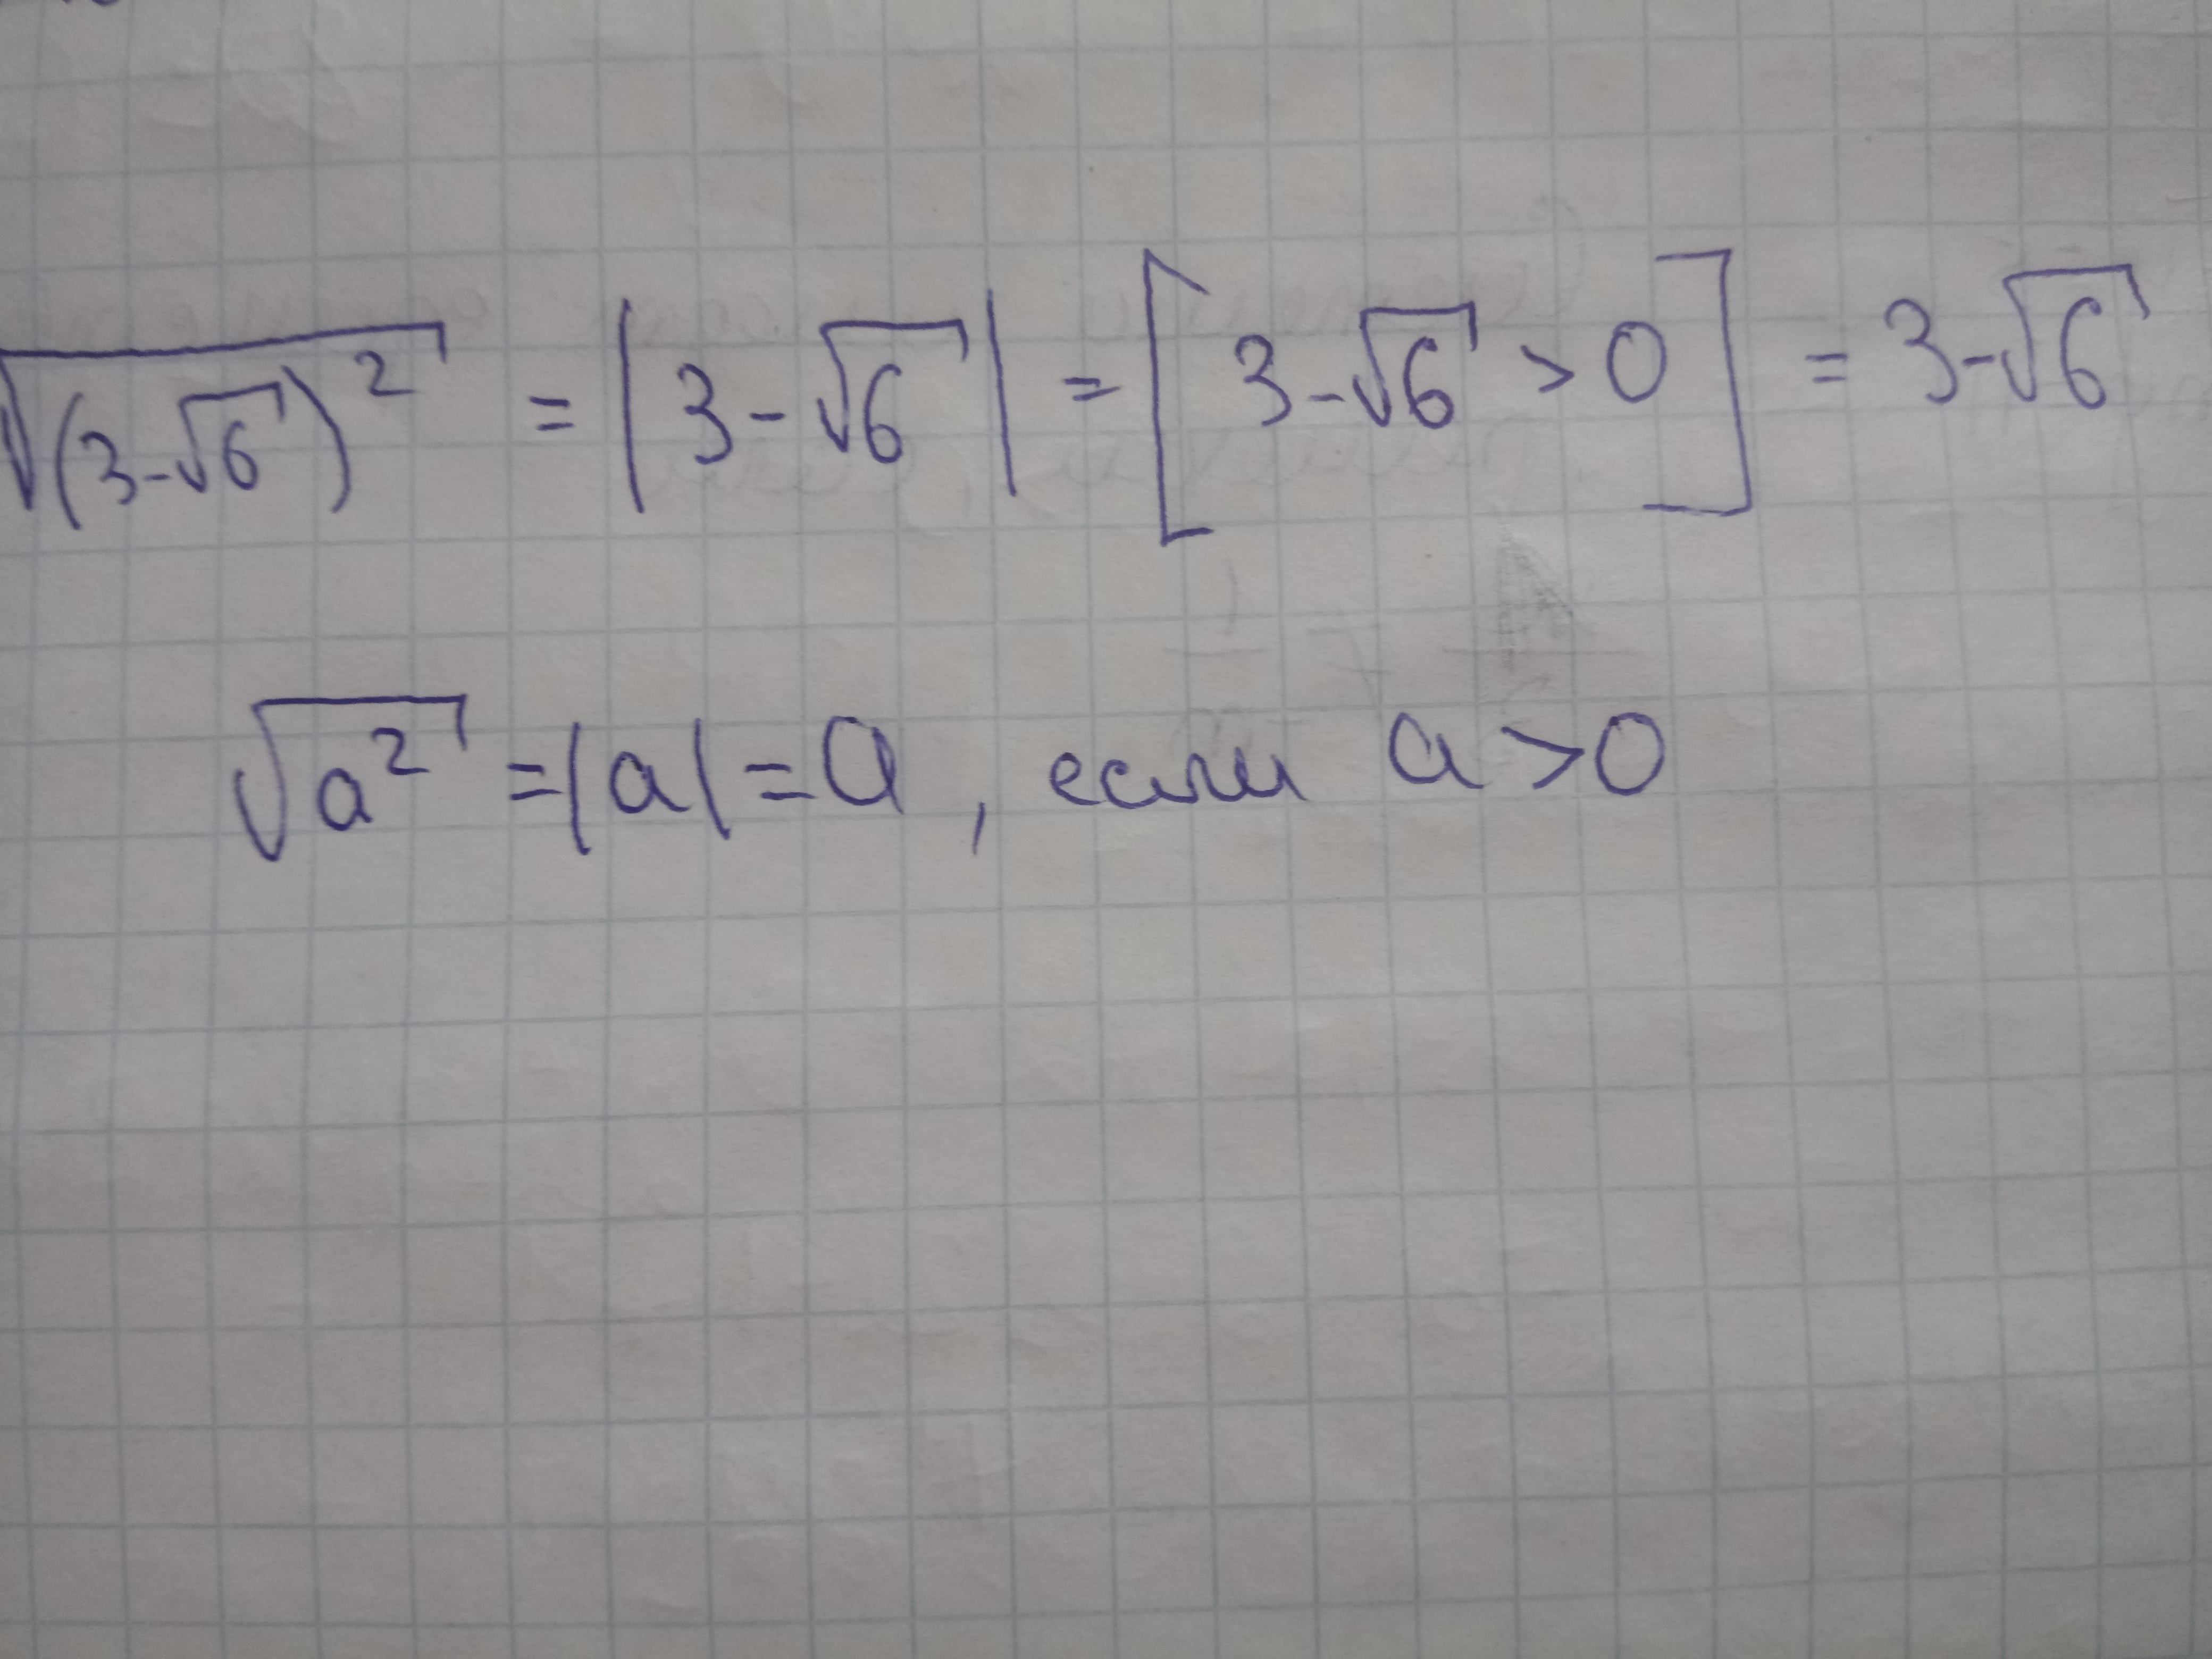 √(3-√6)² = |3-√6| = [3-√6 > 0] = 3-√6
√a² = |a| = a, если a > 0